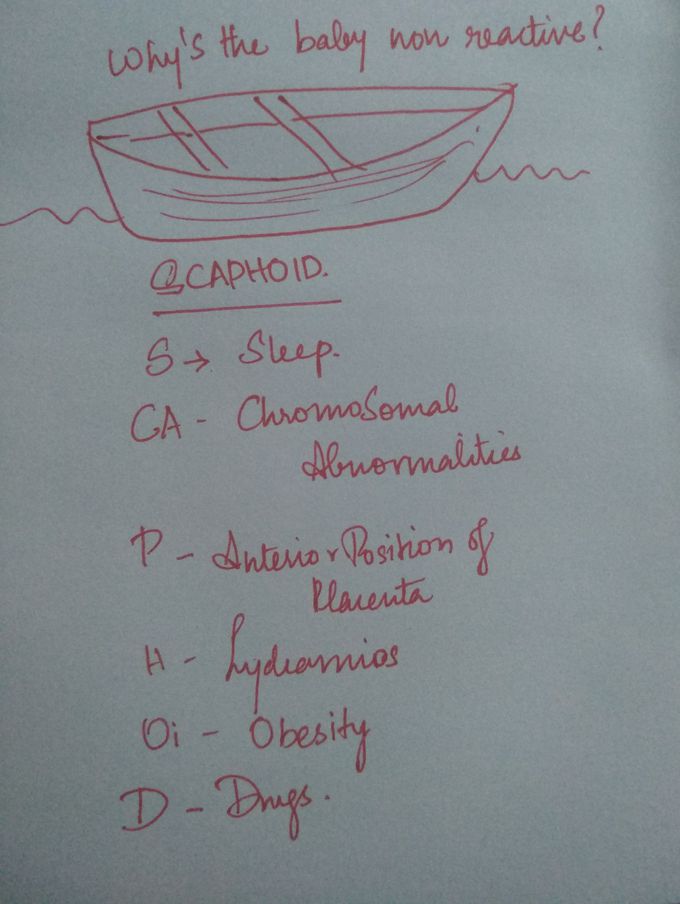 Why's the baby non reactive?
SCAPHOID.
S → Sleep.
CA - Chromosomal
Abnormalities
P - Anterior Position of
Placenta
H - hydramnios
Oi - Obesity
D - Drugs.